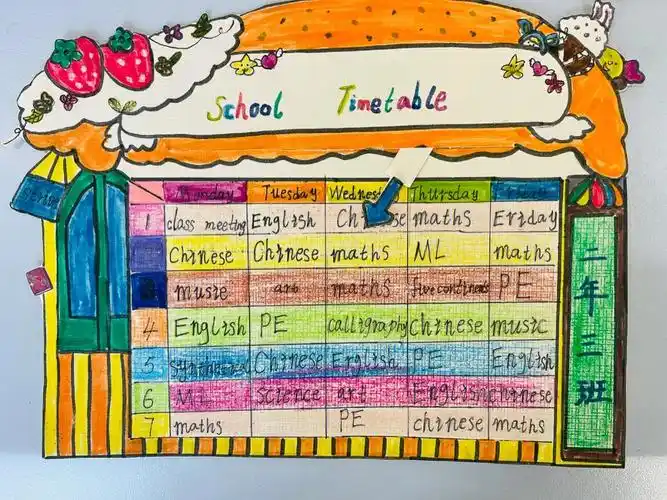 School Timetable
Monday Tuesday Thursday
1 class meeting English maths Eriday
Chinese Chinese maths ML maths
3 music art maths PE
4 English PE calligraphy chinese music
5 Chinese English PE English
6 ML Science art English chinese
7 maths PE chinese maths
二年三班